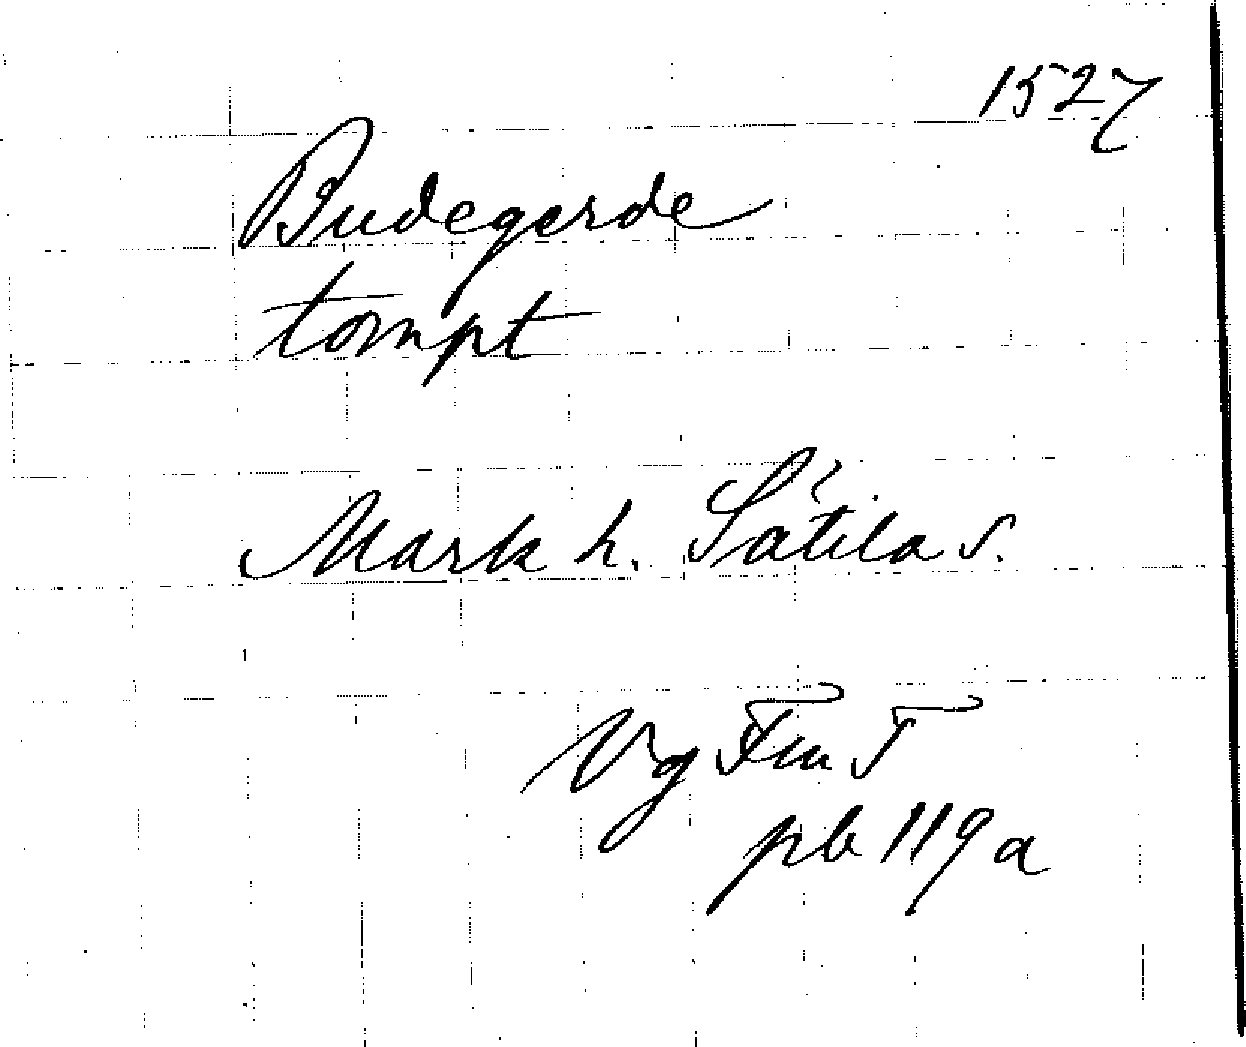 1527
Budegerde
tompt
Mark h. Sätila s.
Vg Fru T
pb 119 a